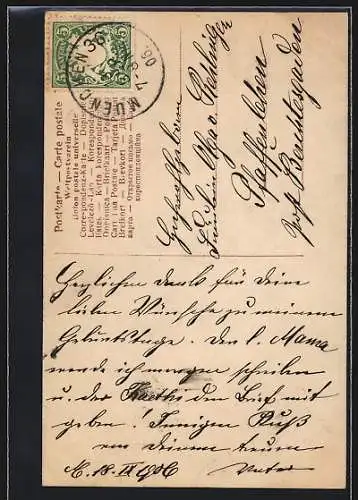 MUENCHEN 36
5 5
Postkarte — Carte postale
Weltpostverein
Union postale universelle
Correspondenzkarte — Dopisnice
Levelező-Lap — Korespondenční
lístek — Karta korespondencyjna
Dopisnica — Briefkaart — Post
Cartolina Postale — Tarjeta
Brefkort — Brevkort —
карта — Открытое письмо
Hochwohlgeboren
Fräulein
Pfaffenlehen
post Berchtesgaden
Herzlichen Dank für Deine
lieben Wünsche zu meinem
Geburtstage. Der l. Mama
werde ich morgen schreiben
u. der Kathi den Brief mit
geben! Innigen Kuß
von Deinem treuen
M. 18. IV 906 Vater